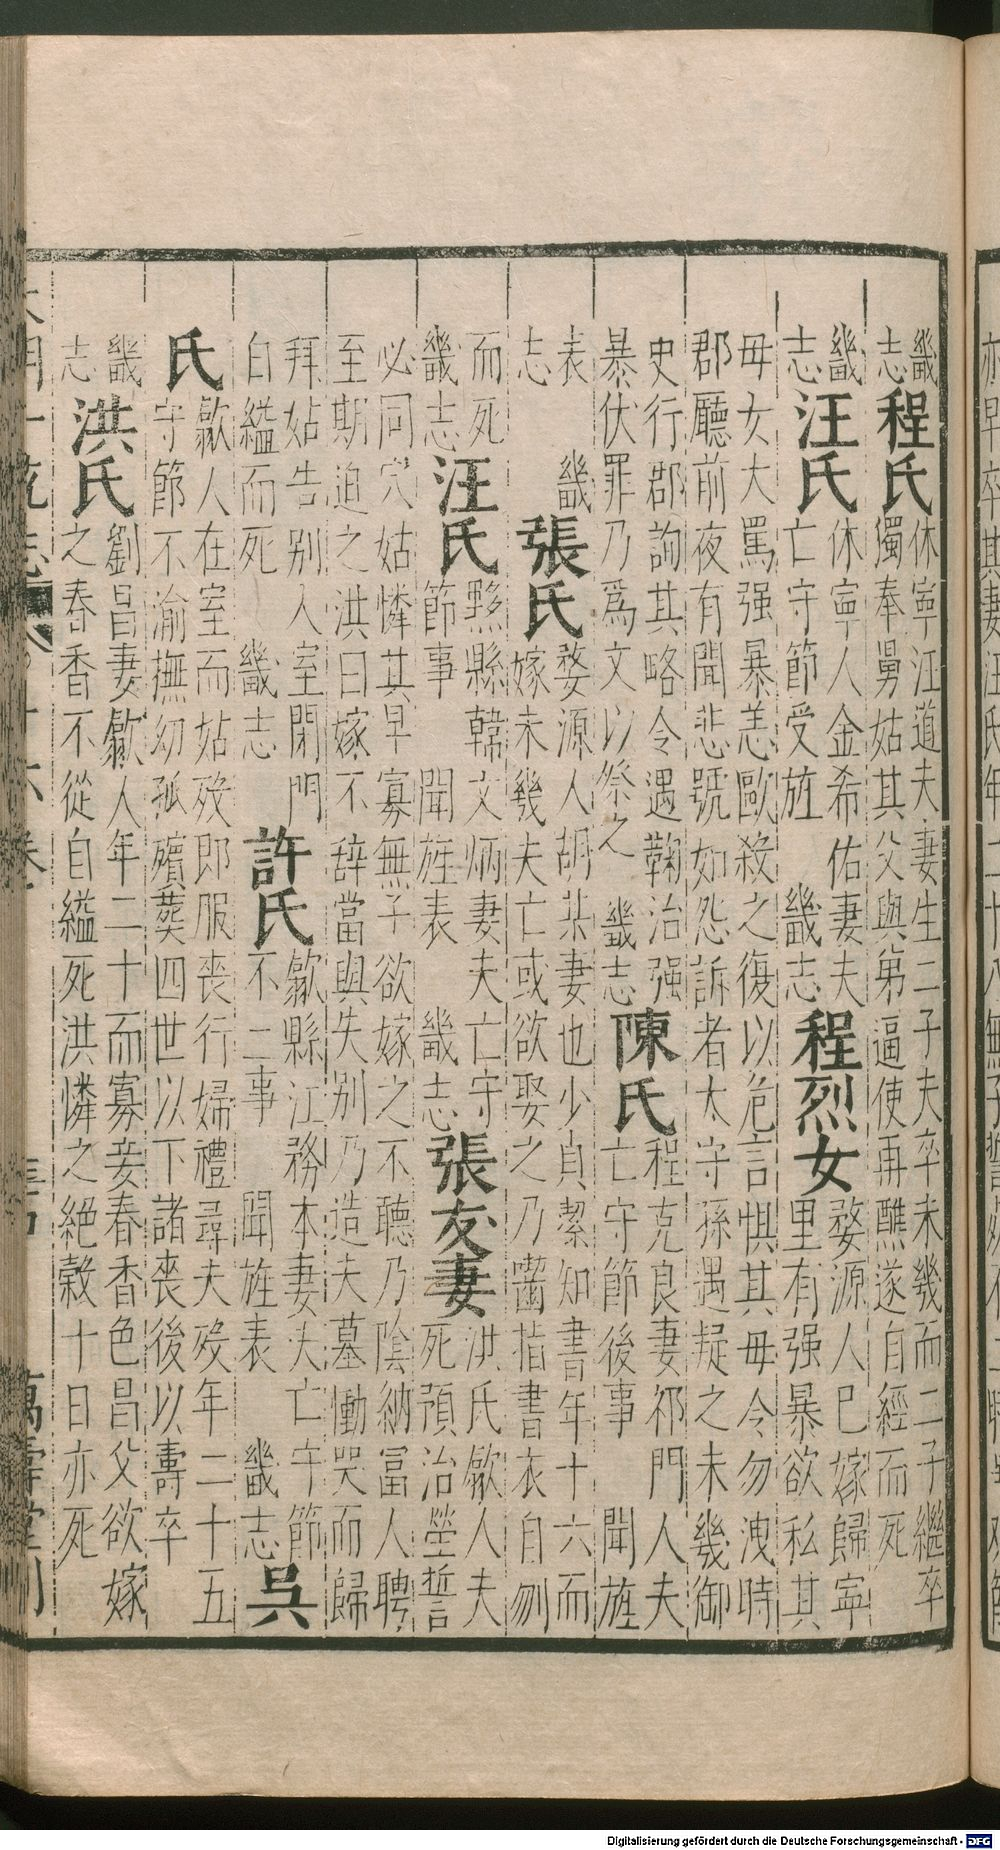 畿志
程氏
休寧汪道夫妻生二子夫卒未幾而二子繼卒
獨奉舅姑其父與弟逼使再醮遂自經而死
畿志
汪氏
休寧人金希佑妻夫
亡守節受旌　畿志
程烈女
婺源人已嫁歸寧
里有强暴欲私其
毋女大罵强暴恙歐殺之復以危言惧其毋令勿洩時
郡廳前夜有聞悲號如怨訴者太守孫遇疑之未幾御
史行郡詢其略令遇鞫治强
暴伏罪乃爲文以祭之　畿志
陳氏
程克良妻祁門人夫
亡守節後事　聞旌
表　畿
志
張氏
婺源人胡某妻也少貞潔知書年十六而
嫁未幾夫亡或欲娶之乃囓指書衣自刎
而死
畿志
汪氏
黟縣韓文炳妻夫亡守
節事　聞旌表　畿志
張友妻
洪氏歙人夫
死預治塋誓
必同穴姑憐其早寡無子欲嫁之不聽乃陰納富人聘
至期迫之洪曰嫁不辭當與失别乃造夫墓慟哭而歸
拜姑告别人室閉門
自縊而死　畿志
許氏
歙縣江務本妻夫亡守節
不二事　聞旌表　畿志
吳
氏
歙人在室而姑歿即服喪行婦禮尋夫歿年二十五
守節不渝撫幼孤殯葬四世以下諸喪後以壽卒
畿志
洪氏
劉昌妻歙人年二十而寡妾春香色昌父欲嫁
之春香不從自縊死洪憐之絶穀十日亦死
萬壽堂刊
Digitalisierung gefördert durch die Deutsche Forschungsgemeinschaft - DFG